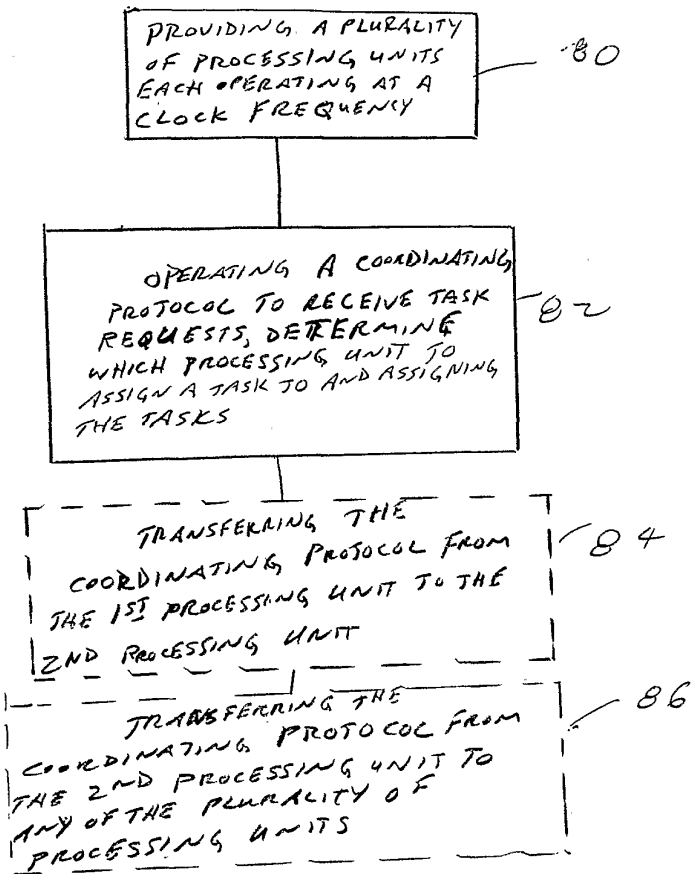 PROVIDING A PLURALITY
OF PROCESSING UNITS
EACH OPERATING AT A
CLOCK FREQUENCY
80
OPERATING A COORDINATING
PROTOCOL TO RECEIVE TASK
REQUESTS, DETERMING
WHICH PROCESSING UNIT TO
ASSIGN A TASK TO AND ASSIGNING
THE TASKS
82
TRANSFERRING THE
COORDINATING PROTOCOL FROM
THE 1ST PROCESSING UNIT TO THE
2ND PROCESSING UNIT
84
TRANSFERRING THE
COORDINATING PROTOCOL FROM
THE 2ND PROCESSING UNIT TO
ANY OF THE PLURALITY OF
PROCESSING UNITS
86